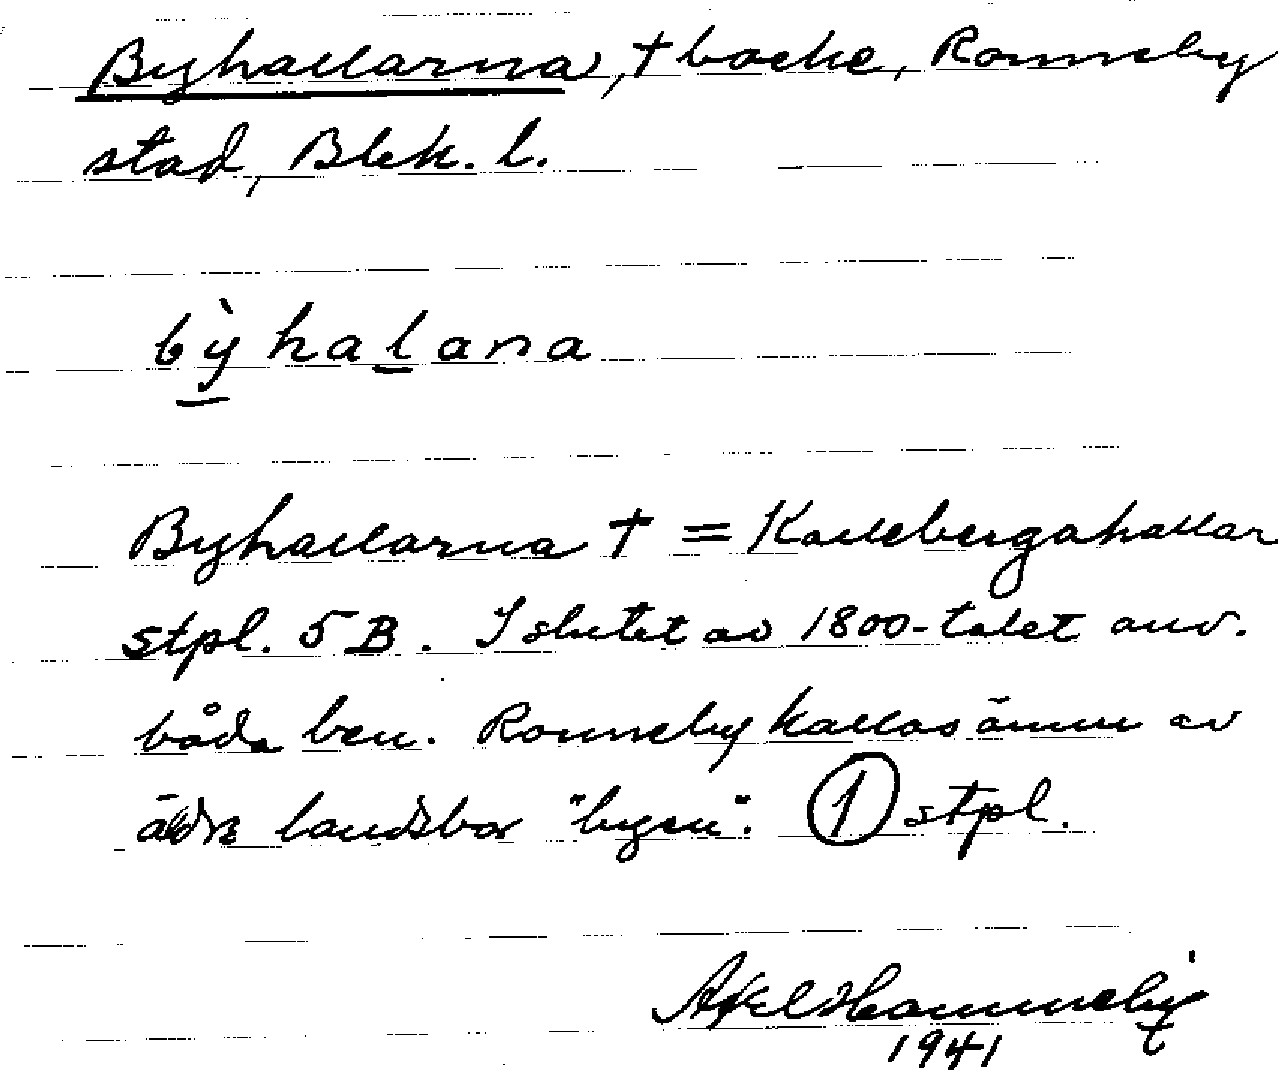 Byhallarna, † backe, Ronneby
stad, Blek. l.
bỳhalana
Byhallarna † = Kallebergahallar
stpl. 5 B. I slutet av 1800-talet anv.
båda ben. Ronneby kallas ännu av
äldre landsbor "byen". ① stpl.
Axel Hammeby
1941